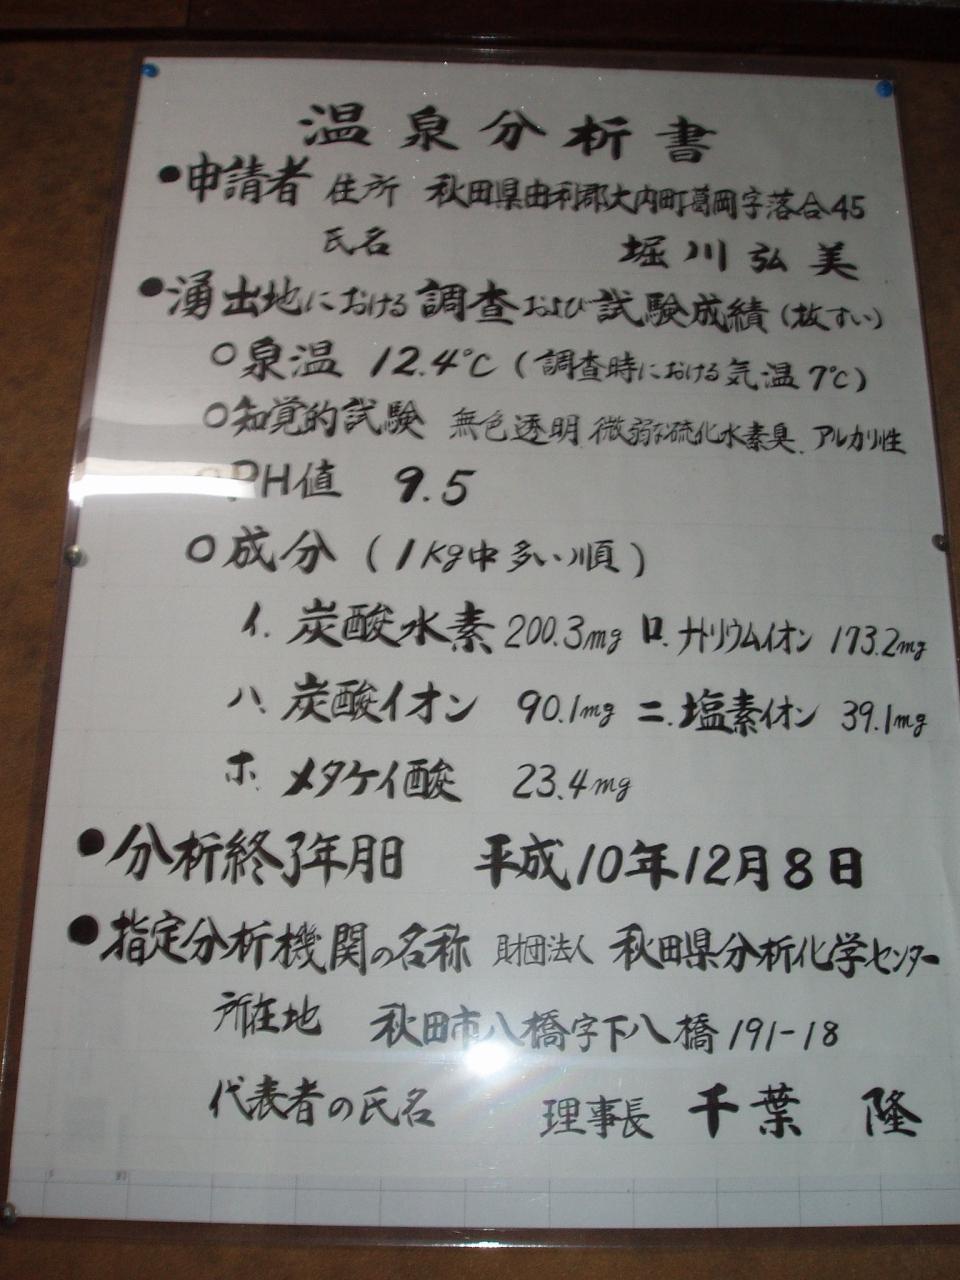 温泉分析書
●申請者 住所 秋田県由利郡大内町葛岡字落合45
氏名 堀川弘美
●湧出地における調査および試験成績(抜すい)
○泉温 12.4℃(調査時における気温7℃)
○知覚的試験 無色透明.微弱な硫化水素臭.アルカリ性
○PH値 9.5
○成分(1kg中多い順)
イ.炭酸水素200.3mg ロ.ナトリウムイオン 173.2mg
ハ.炭酸イオン 90.1mg ニ.塩素イオン 39.1mg
ホ.メタケイ酸 23.4mg
●分析終了年月日 平成10年12月8日
●指定分析機関の名称 財団法人 秋田県分析化学センター
所在地 秋田市八橋字下八橋191-18
代表者の氏名 理事長 千葉 隆